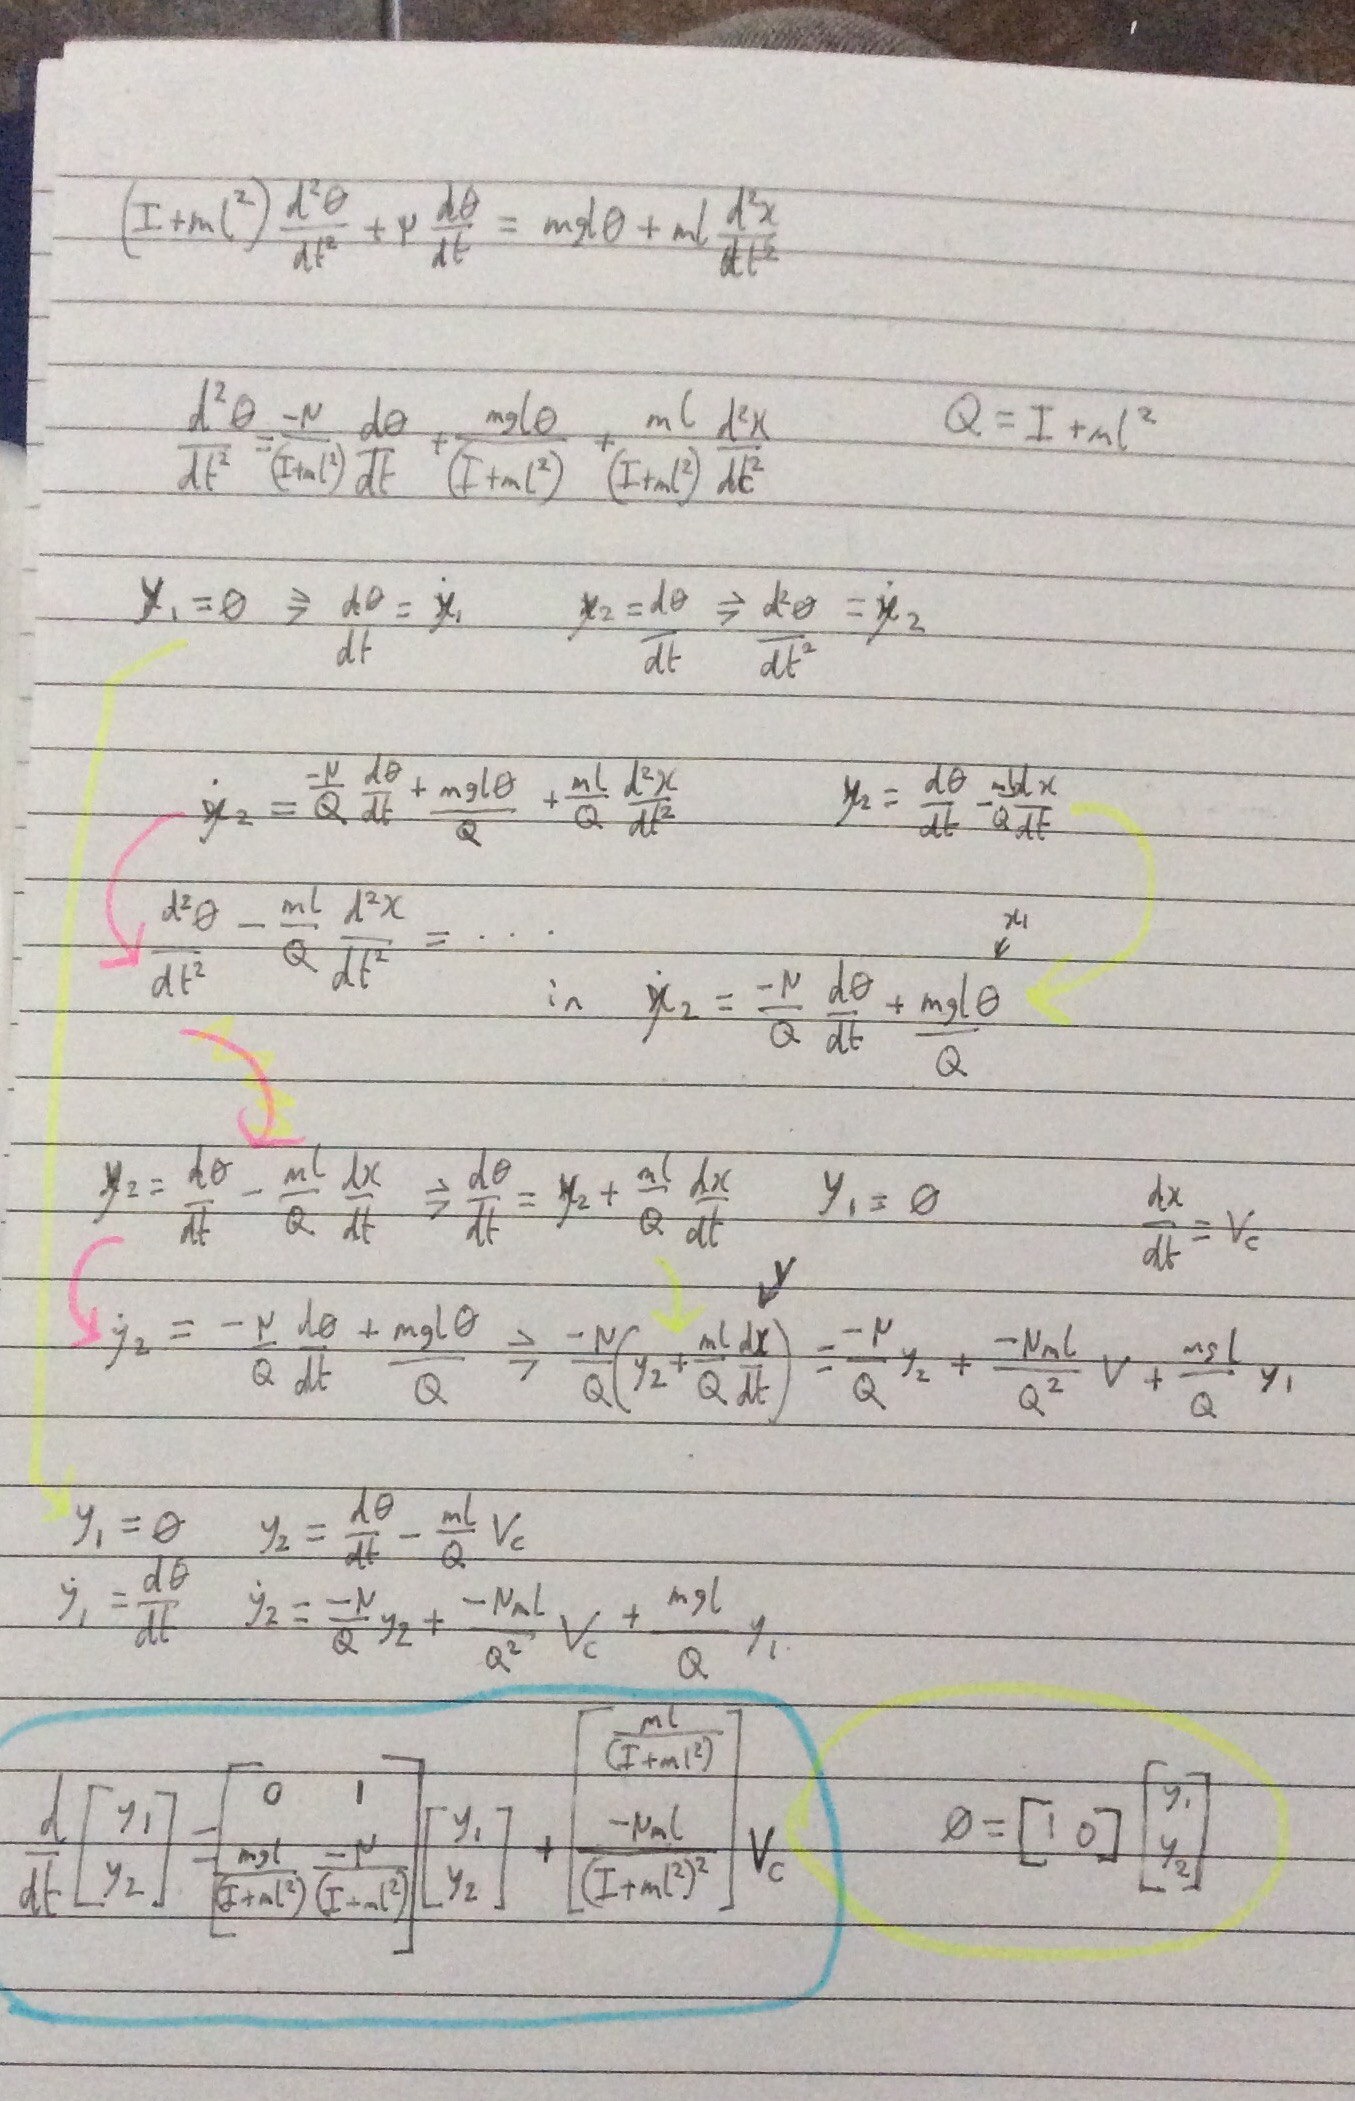 (I+ml²) d²θ/dt² + μ dθ/dt = mglθ + ml d²x/dt²
d²θ/dt² = -μ/(I+ml²) dθ/dt + mglθ/(I+ml²) + ml/(I+ml²) d²x/dt²   Q = I+ml²
y₁ = θ ⇒ dθ/dt = ẏ₁   y₂ = dθ/dt ⇒ d²θ/dt² = ẏ₂
ẏ₂ = -μ/Q dθ/dt + mglθ/Q + ml/Q d²x/dt²   y₂ = dθ/dt - ml/Q dx/dt
d²θ/dt² - ml/Q d²x/dt² = ....
x₁
in ẏ₂ = -μ/Q dθ/dt + mglθ/Q
y₂ = dθ/dt - ml/Q dx/dt ⇒ dθ/dt = y₂ + ml/Q dx/dt   y₁ = θ   dx/dt = Vc
V
ẏ₂ = -μ/Q dθ/dt + mglθ/Q ⇒ -μ/Q (y₂ + ml/Q dx/dt) = -μ/Q y₂ + -μml/Q² V + mgl/Q y₁
y₁ = θ   y₂ = dθ/dt - ml/Q Vc
ẏ₁ = dθ/dt   ẏ₂ = -μ/Q y₂ + -μml/Q² Vc + mgl/Q y₁
d/dt [y₁ y₂] = [0 1 mgl/(I+ml²) -μ/(I+ml²)] [y₁ y₂] + [ml/(I+ml²) -μml/(I+ml²)²] Vc   θ = [1 0] [y₁ y₂]